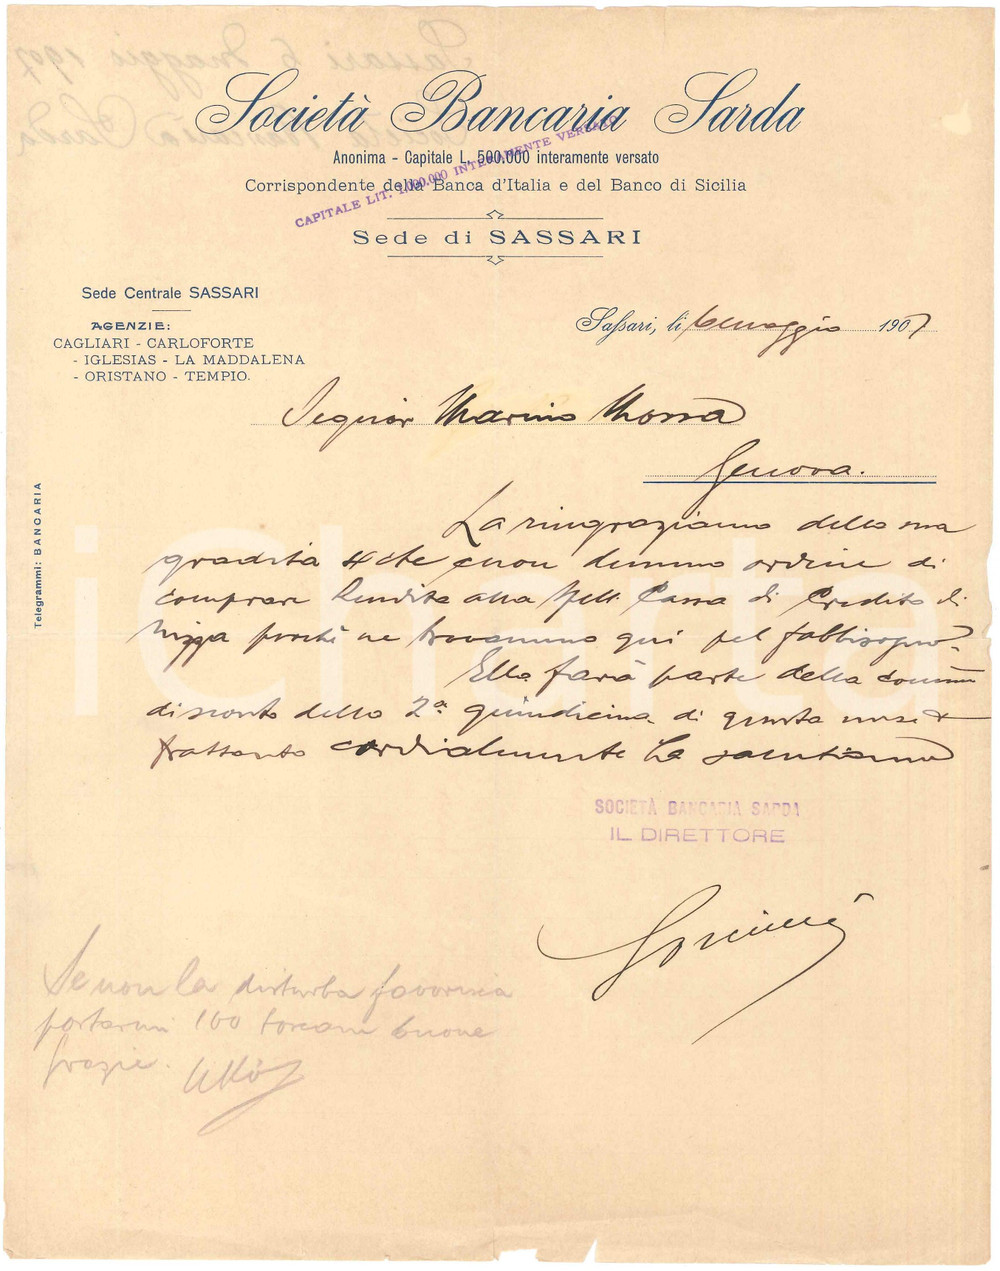 Società Bancaria Sarda
Anonima - Capitale L. 500.000 interamente versato
CAPITALE LIT. 1.000.000 INTERAMENTE VERSATO
Corrispondente della Banca d'Italia e del Banco di Sicilia
Sede di SASSARI
Sede Centrale SASSARI
AGENZIE:
CAGLIARI - CARLOFORTE
- IGLESIAS - LA MADDALENA
- ORISTANO - TEMPIO.
Sassari, li 6 maggio 1907
Signor Marino Mossa
Genova.
Telegrammi: BANCARIA
La ringraziamo della sua
gradita 4 cte e non demmo ordine di
comprare Rendita alla Cassa di Credito di
Nizza perchè ne troviamo qui pel fabbisogno.
Ella farà parte della comm
disconto della 2a quindicina di questo mese e
frattanto cordialmente La salutiamo
SOCIETÀ BANCARIA SARDA
IL DIRETTORE
Se non la disturba favorisca
portarmi 100 toscani buone
Grazie.
iCharta
Sassari 6 Maggio 1907
Società Bancaria Sarda